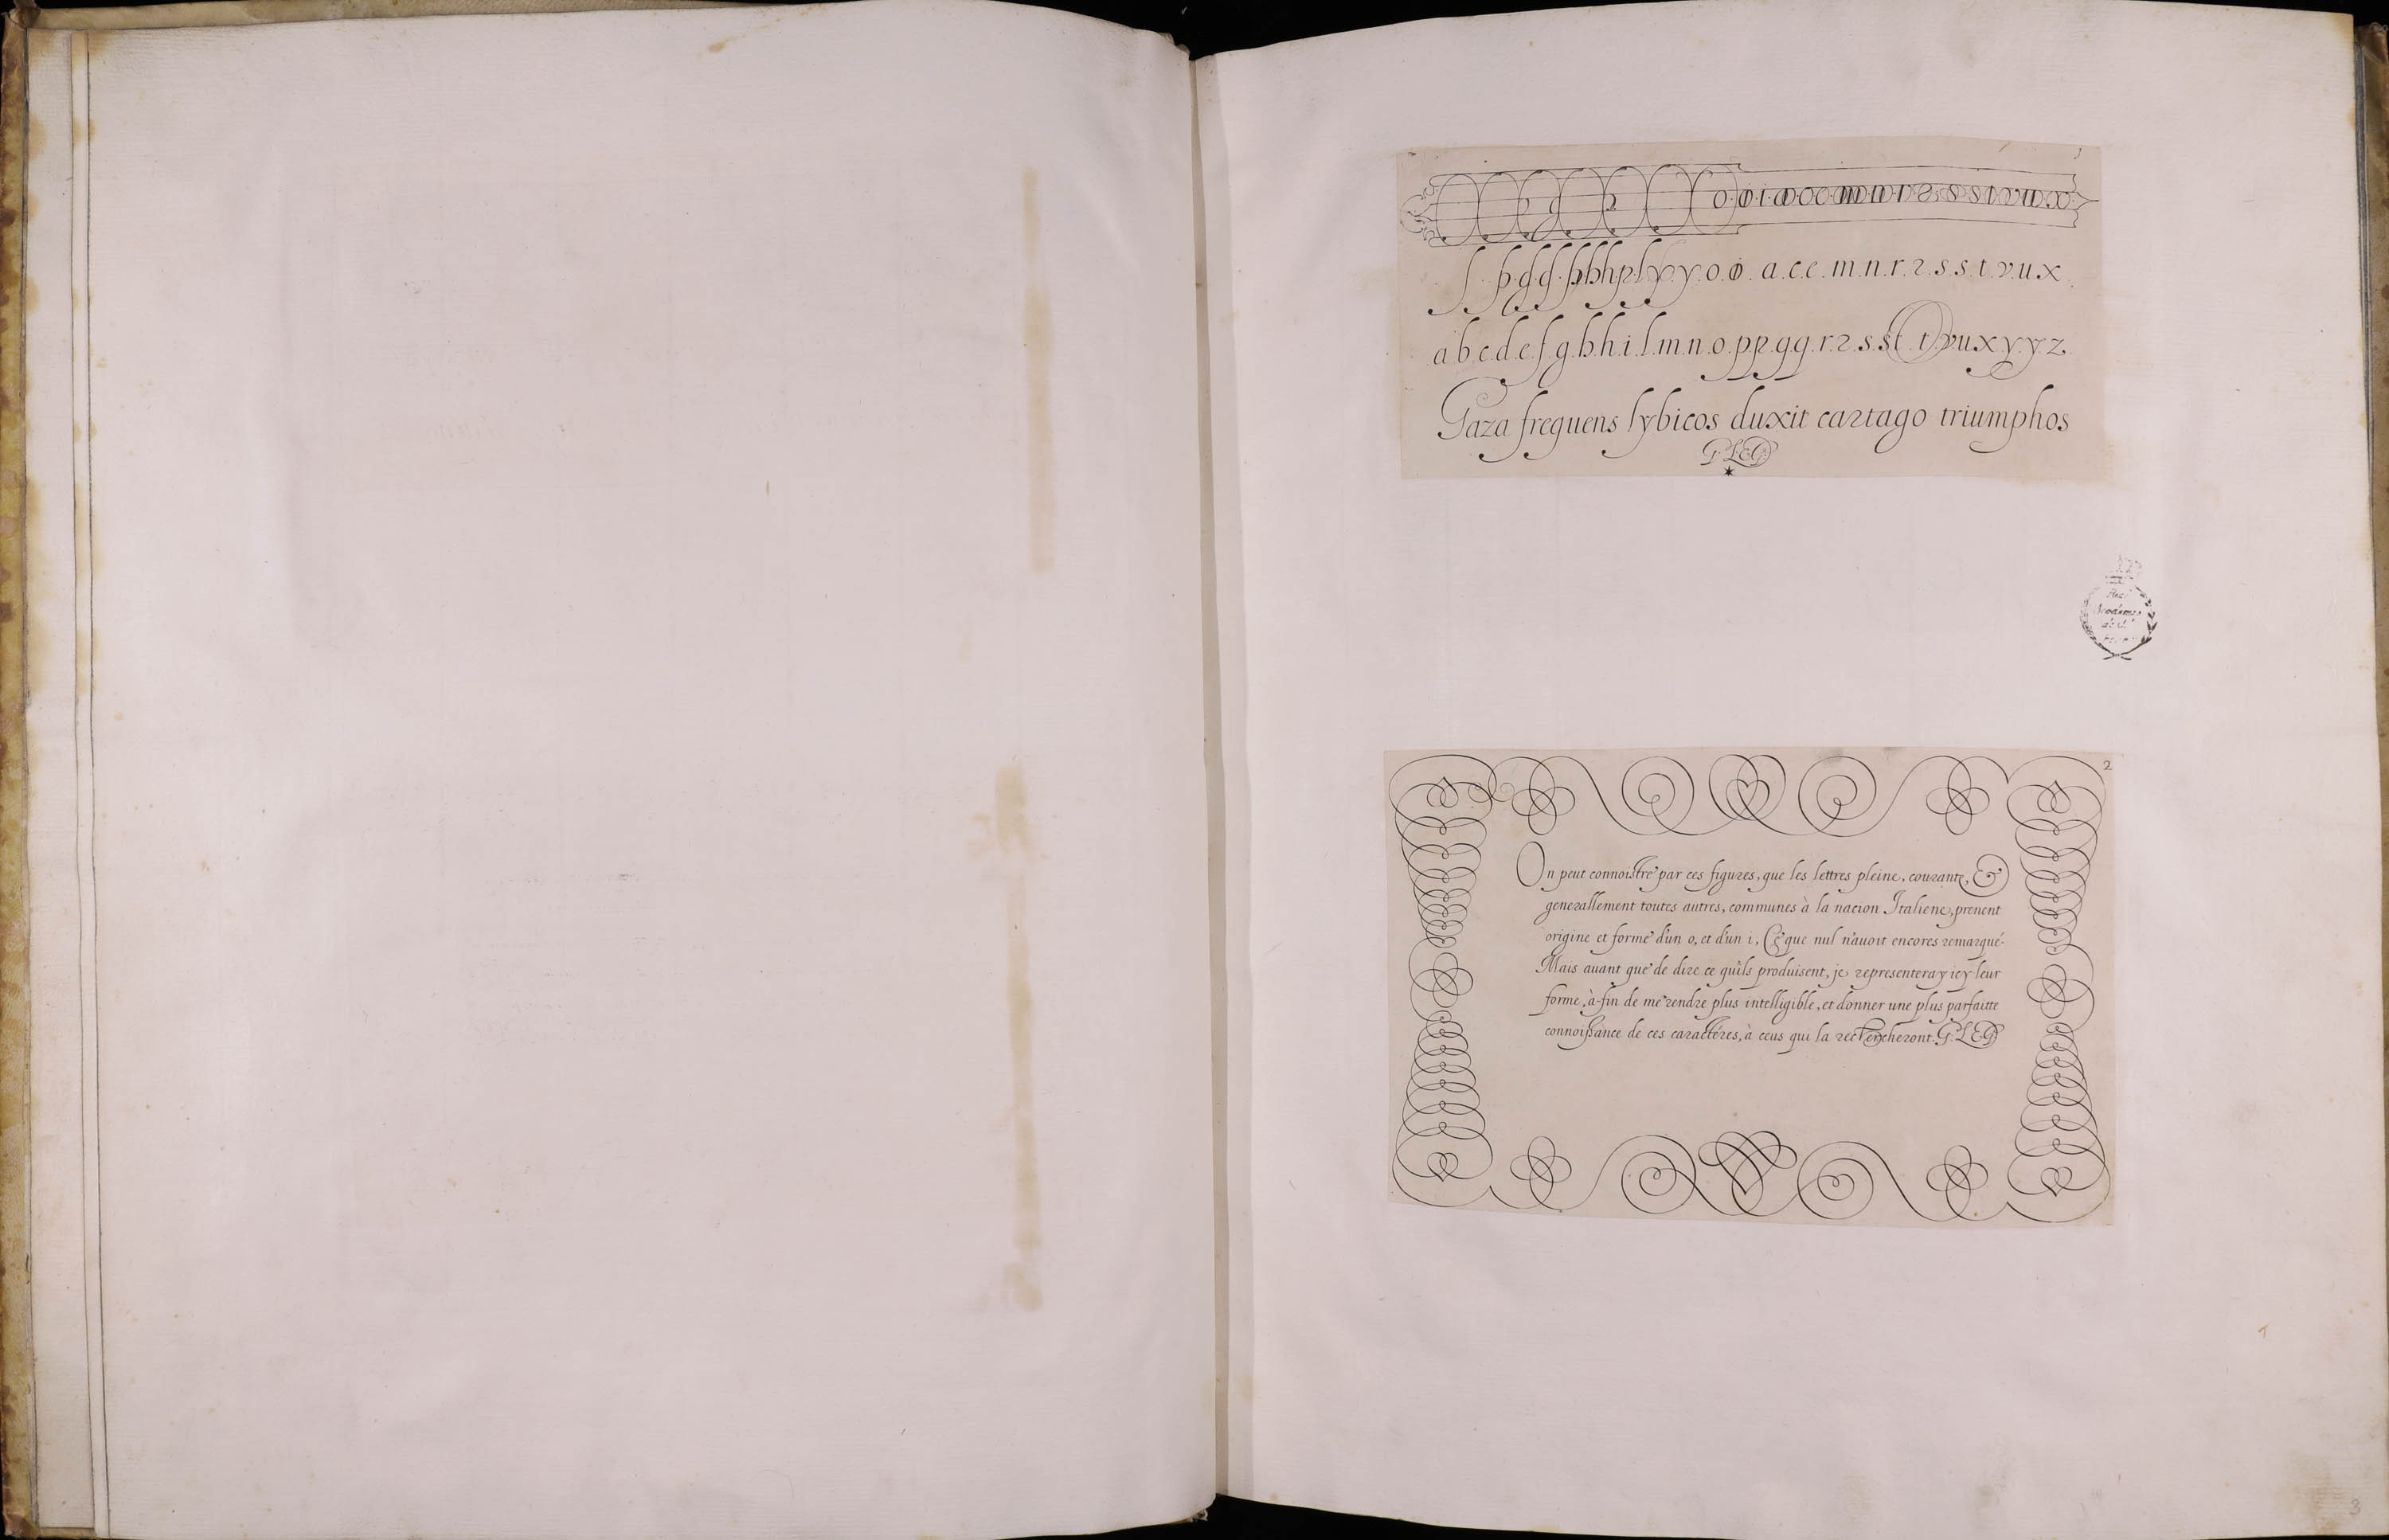 o.o.i.a.o.c.c.m.n.r.2.s.s.t.v.u.x
a.c.e.m.n.r.2.s.s.t.v.u.x
a.b.c.d.e.f.g.b.h.i.l.m.n.o.p.p.q.q.r.2.s.st.t.v.u.x.y.y.z
Gaza frequens lybicos duxit cartago triumphos
G.L.E.G.
2
On peut connoistre par ces figures, que les lettres pleine, courante, &
generallement toutes autres, communes à la nacion Italiene, prenent
origine et forme d'un o, et d'un i, Ce que nul n'auoit encores remarqué.
Mais auant que de dire ce qu'ils produisent, je representeray icy leur
forme, à-fin de me rendre plus intelligible, et donner une plus parfaitte
connoissance de ces caractéres, à ceus qui la rechercheront. G.L.E.G
Real
Academia
de S.
3